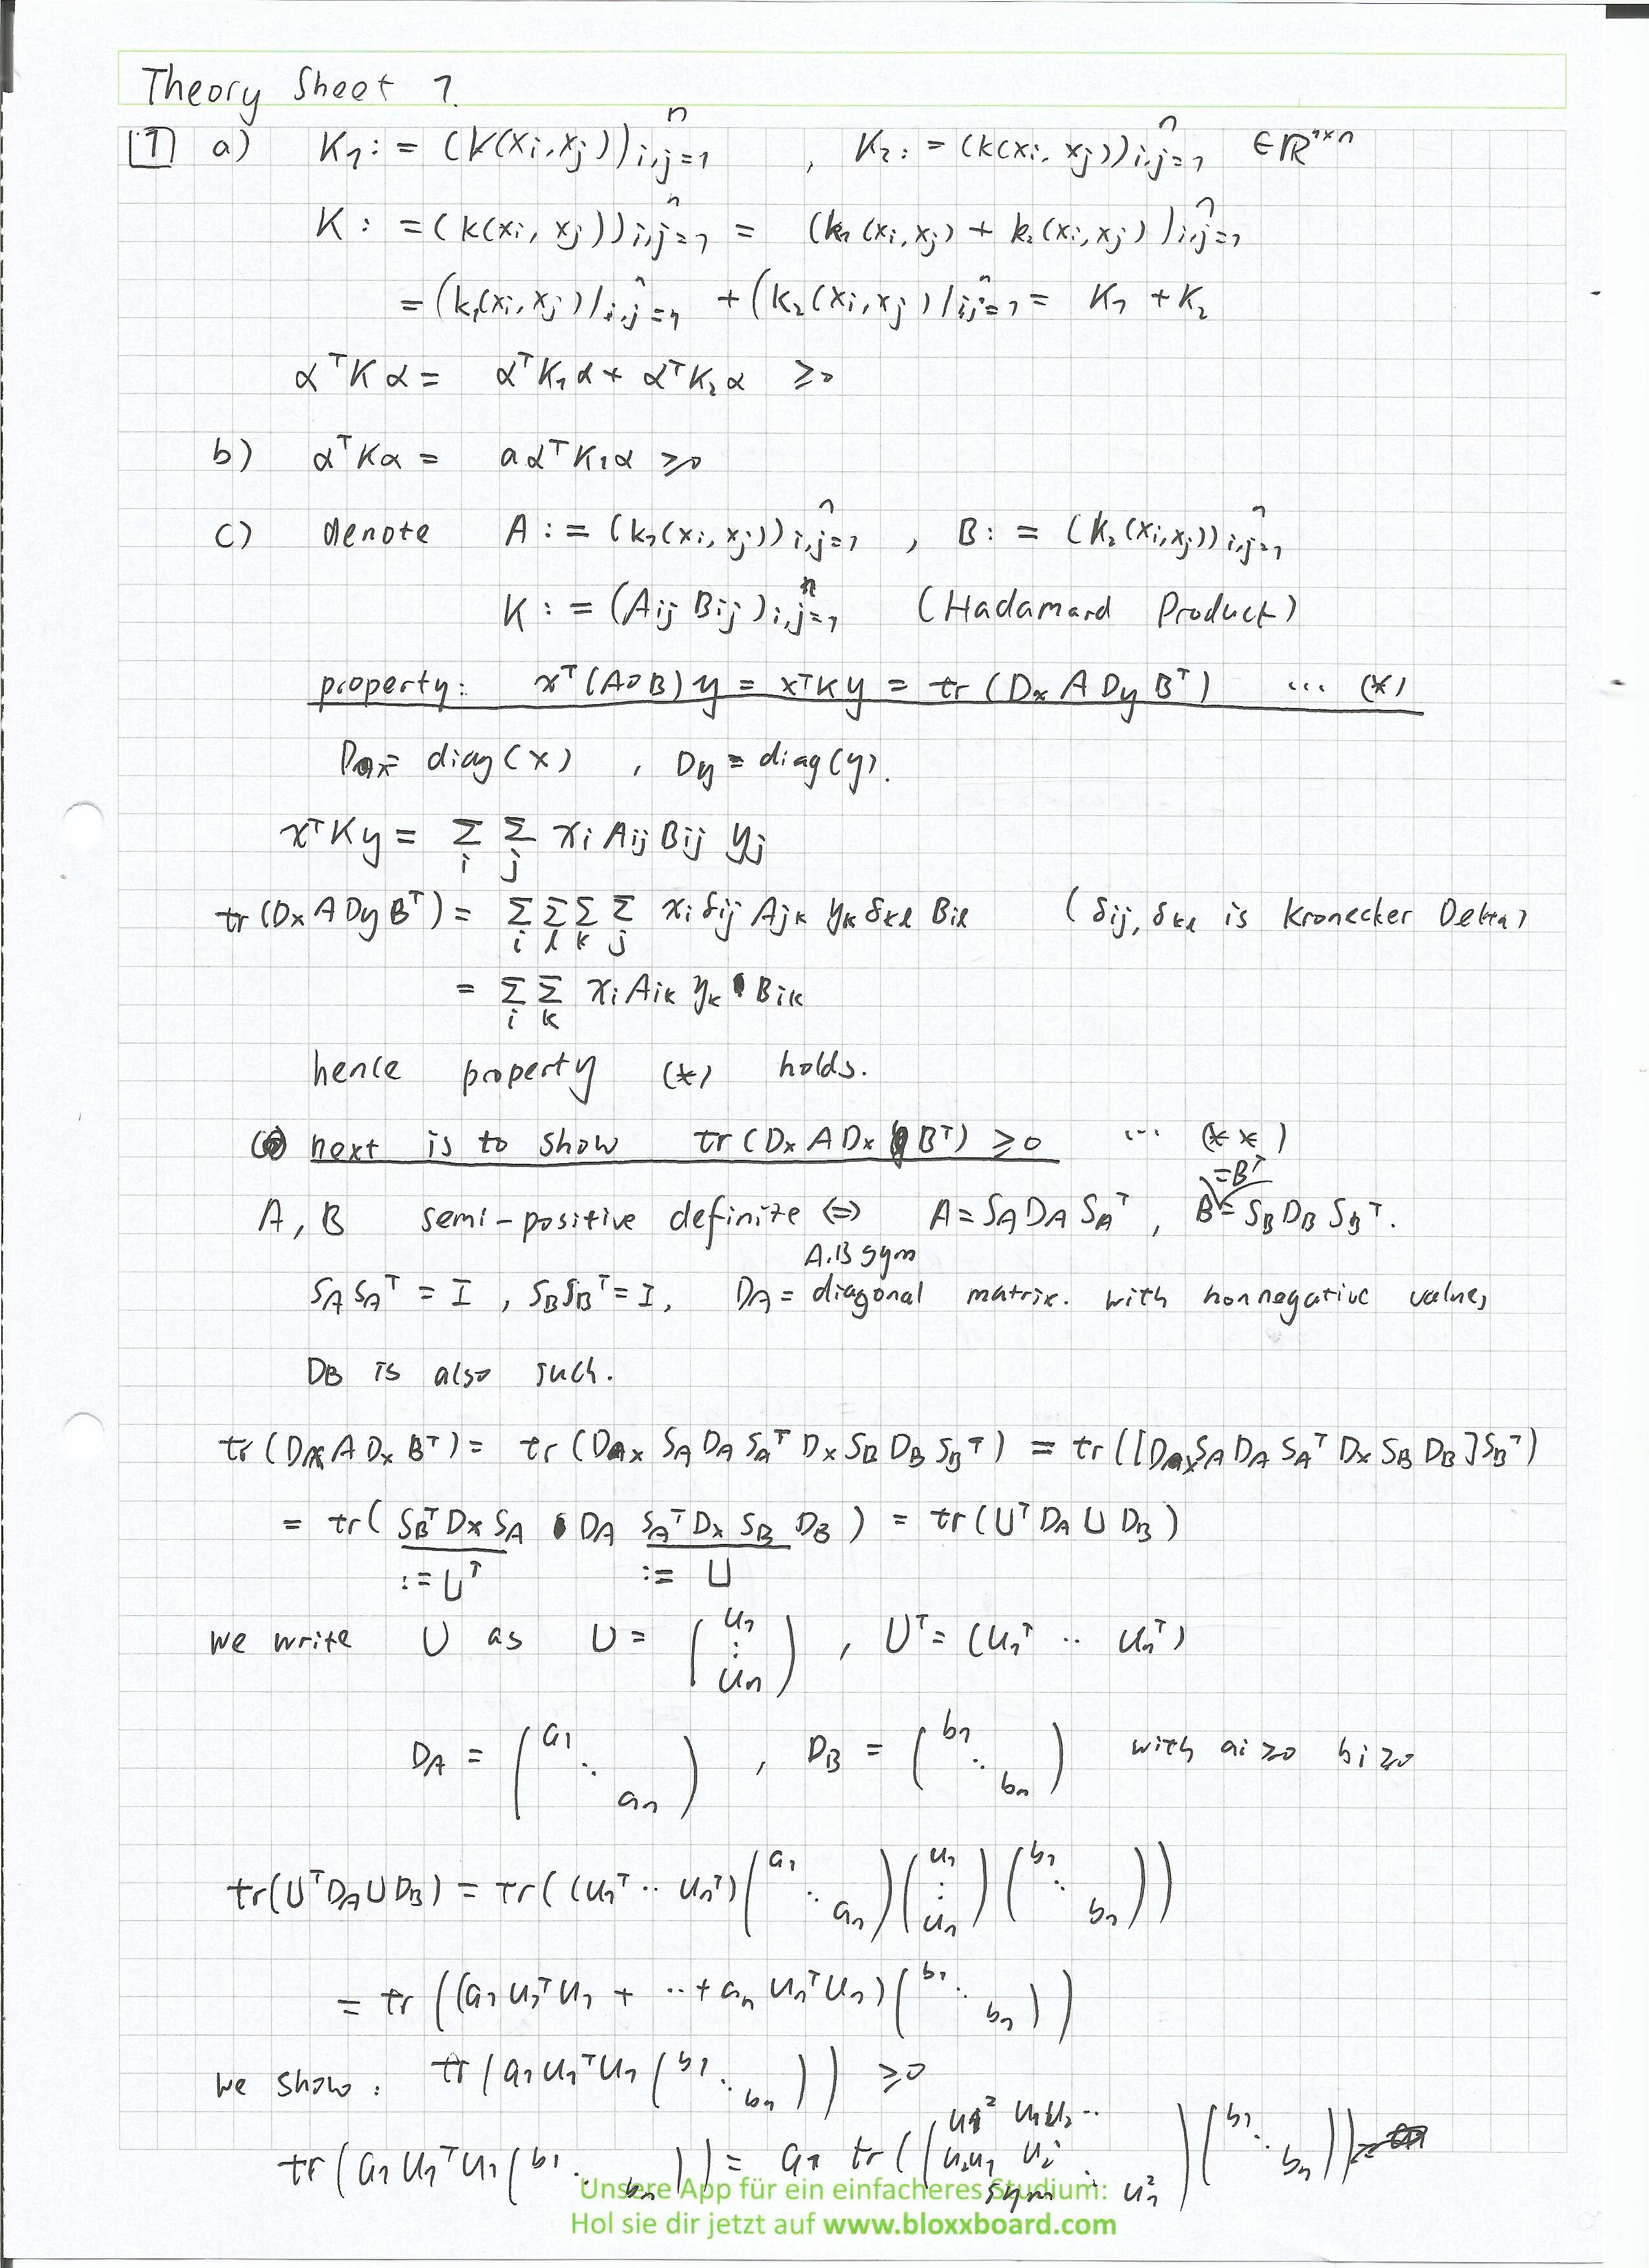 Theory Sheet 1.
[1] a) K₁ := (k(xi, xj))ⁿi,j=1 , K₂ := (k(xi, xj))ⁿi,j=1 ∈ ℝⁿˣⁿ
K := (k(xi, xj))ⁿi,j=1 = (k₁(xi, xj) + k₂(xi, xj))ⁿi,j=1
= (k₁(xi, xj))ⁿi,j=1 + (k₂(xi, xj))ⁿi,j=1 = K₁ + K₂
αᵀKα = αᵀK₁α + αᵀK₂α ≥0
b) αᵀKα = aαᵀK₁α ≥0
c) denote A := (k₁(xi, xj))ⁿi,j=1 , B := (k₂(xi, xj))ⁿi,j=1
K := (Aij Bij)ⁿi,j=1 (Hadamard Product)
property: xᵀ(A∘B)y = xᵀKy = tr(Dx A Dy Bᵀ) ... (*)
Dx = diag(x) , Dy = diag(y).
xᵀKy = Σi Σj xi Aij Bij yj
tr(Dx A Dy Bᵀ) = Σi Σl Σk Σj xi δij Ajk yk δkl Bil (δij, δkl is Kronecker Delta)
= Σi Σk xi Aik yk Bik
hence property (*) holds.
next is to show tr(Dx A Dx Bᵀ) ≥0 ... (**)
A, B semi-positive definite ⇔ A = SA DA SAᵀ , B = SB DB SBᵀ.
=Bᵀ
A,B sym
SA SAᵀ = I , SB SBᵀ = I, DA = diagonal matrix. with nonnegative values
DB is also such.
tr(Dx A Dx Bᵀ) = tr(Dx SA DA SAᵀ Dx SB DB SBᵀ) = tr([Dx SA DA SAᵀ Dx SB DB] SBᵀ)
= tr(SBᵀ Dx SA DA SAᵀ Dx SB DB) = tr(Uᵀ DA U DB)
:= Uᵀ := U
we write U as U = (u₁ ⋮ un) , Uᵀ = (u₁ᵀ ·· unᵀ)
DA = (a₁ ⋱ an) , DB = (b₁ ⋱ bn) with ai ≥0 bi ≥0
tr(Uᵀ DA U DB) = tr((u₁ᵀ ·· unᵀ)(a₁ ⋱ an)(u₁ ⋮ un)(b₁ ⋱ bn))
= tr((a₁ u₁ᵀ u₁ + ·· + an unᵀ un)(b₁ ⋱ bn))
we show: tr(a₁ u₁ᵀ u₁ (b₁ ⋱ bn)) ≥0
tr(a₁ u₁ᵀ u₁ (b₁ ⋱ bn)) = a₁ tr((u₁² u₁u₂ ·· u₂u₁ u₂² sym ⋱ un²)(b₁ ⋱ bn))
Unsere App für ein einfacheres Studium:
Hol sie dir jetzt auf www.bloxxboard.com